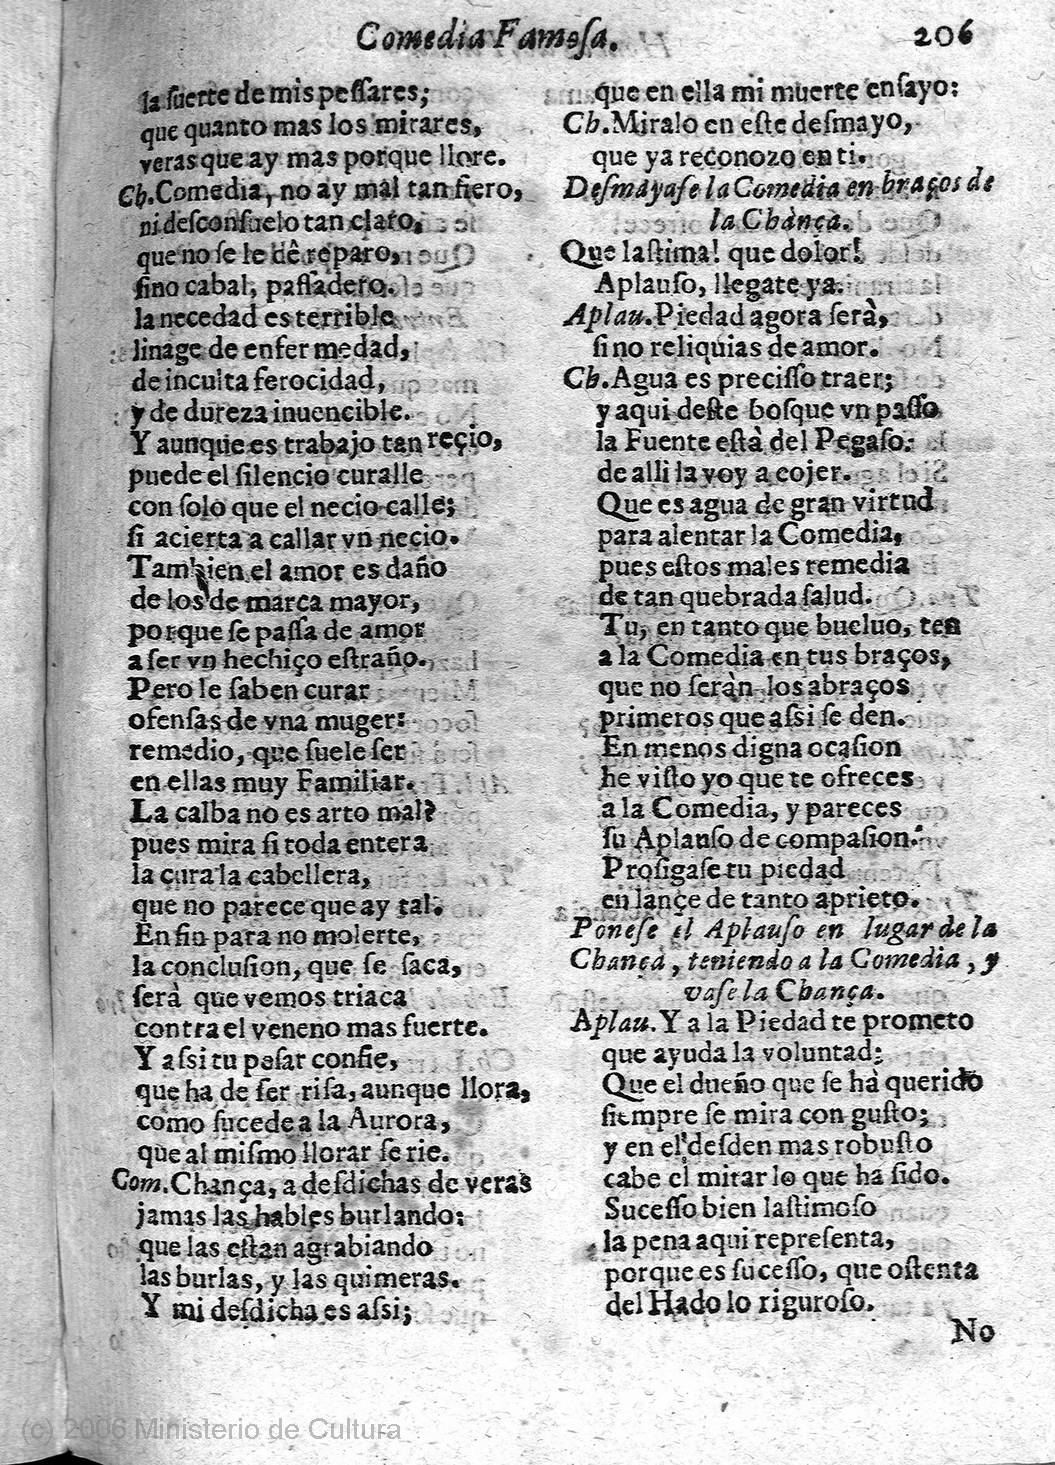 Comedia Famosa. 206
la suerte de mis pessares;
que quanto mas los mirares,
veras que ay mas porque llore.
Ch. Comedia, no ay mal tan fiero,
ni desconsuelo tan claro,
que no se le dê reparo,
sino cabal, passadero.
la necedad es terrible
linage de enfermedad,
de inculta ferocidad,
y de dureza inuencible.
Y aunque es trabajo tan reçio,
puede el silencio curalle
con solo que el necio calle;
si acierta a callar vn necio.
Tambien el amor es daño
de los de marca mayor,
porque se passa de amor
a ser vn hechiço estraño.
Pero le saben curar
ofensas de vna muger:
remedio, que suele ser
en ellas muy Familiar.
La calba no es arto mal?
pues mira si toda entera
la cura la cabellera,
que no parece que ay tal.
En fin para no molerte,
la conclusion, que se saca,
serà que vemos triaca
contra el veneno mas fuerte.
Y assi tu pesar confie,
que ha de ser risa, aunque llora,
como sucede a la Aurora,
que al mismo llorar se rie.
Com. Chança, a desdichas de veras
jamas las hables burlando:
que las estan agrabiando
las burlas, y las quimeras.
Y mi desdicha es assi;
que en ella mi muerte ensayo:
Ch. Miralo en este desmayo,
que ya reconozo en ti.
Desmayase la Comedia en braços de
la Chànça.
Que lastima! que dolor!
Aplauso, llegate ya.
Aplau. Piedad agora serà,
si no reliquias de amor.
Ch. Agua es precisso traer;
y aqui deste bosque vn passo
la Fuente està del Pegaso:
de alli la voy a cojer.
Que es agua de gran virtud
para alentar la Comedia,
pues estos males remedia
de tan quebrada salud.
Tu, en tanto que bueluo, ten
a la Comedia en tus braços,
que no seràn los abraços
primeros que assi se den.
En menos digna ocasion
he visto yo que te ofreces
a la Comedia, y pareces
su Aplauso de compasion.
Prosigase tu piedad
en lançe de tanto aprieto.
Ponese el Aplauso en lugar de la
Chança, teniendo a la Comedia, y
vase la Chança.
Aplau. Y a la Piedad te prometo
que ayuda la voluntad;
Que el dueño que se hà querido
siempre se mira con gusto;
y en el desden mas robusto
cabe el mirar lo que ha sido.
Sucesso bien lastimoso
la pena aqui representa,
porque es sucesso, que ostenta
del Hado lo riguroso.
No
(c) 2006 Ministerio de Cultura